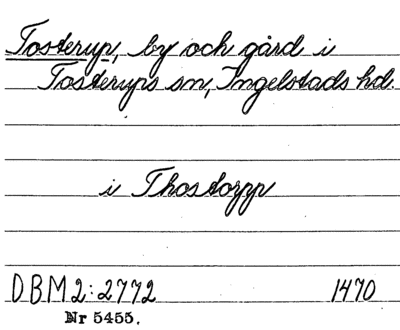 Tosterup, by och gård i
Tosterups sn, Ingelstads hd.
i Thostorpp
DBM 2:2772 1470
Nr 5455.